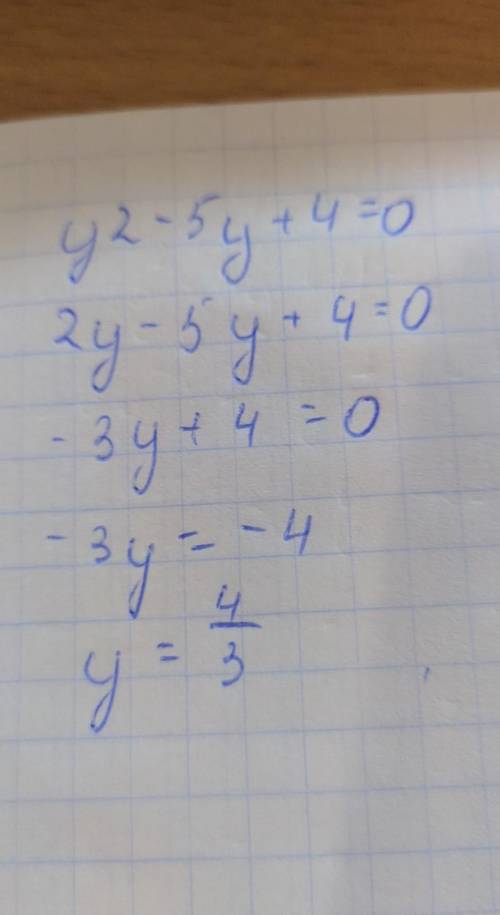 y2 - 5y + 4 = 0
2y - 5y + 4 = 0
- 3y + 4 = 0
- 3y = - 4
y = 4/3